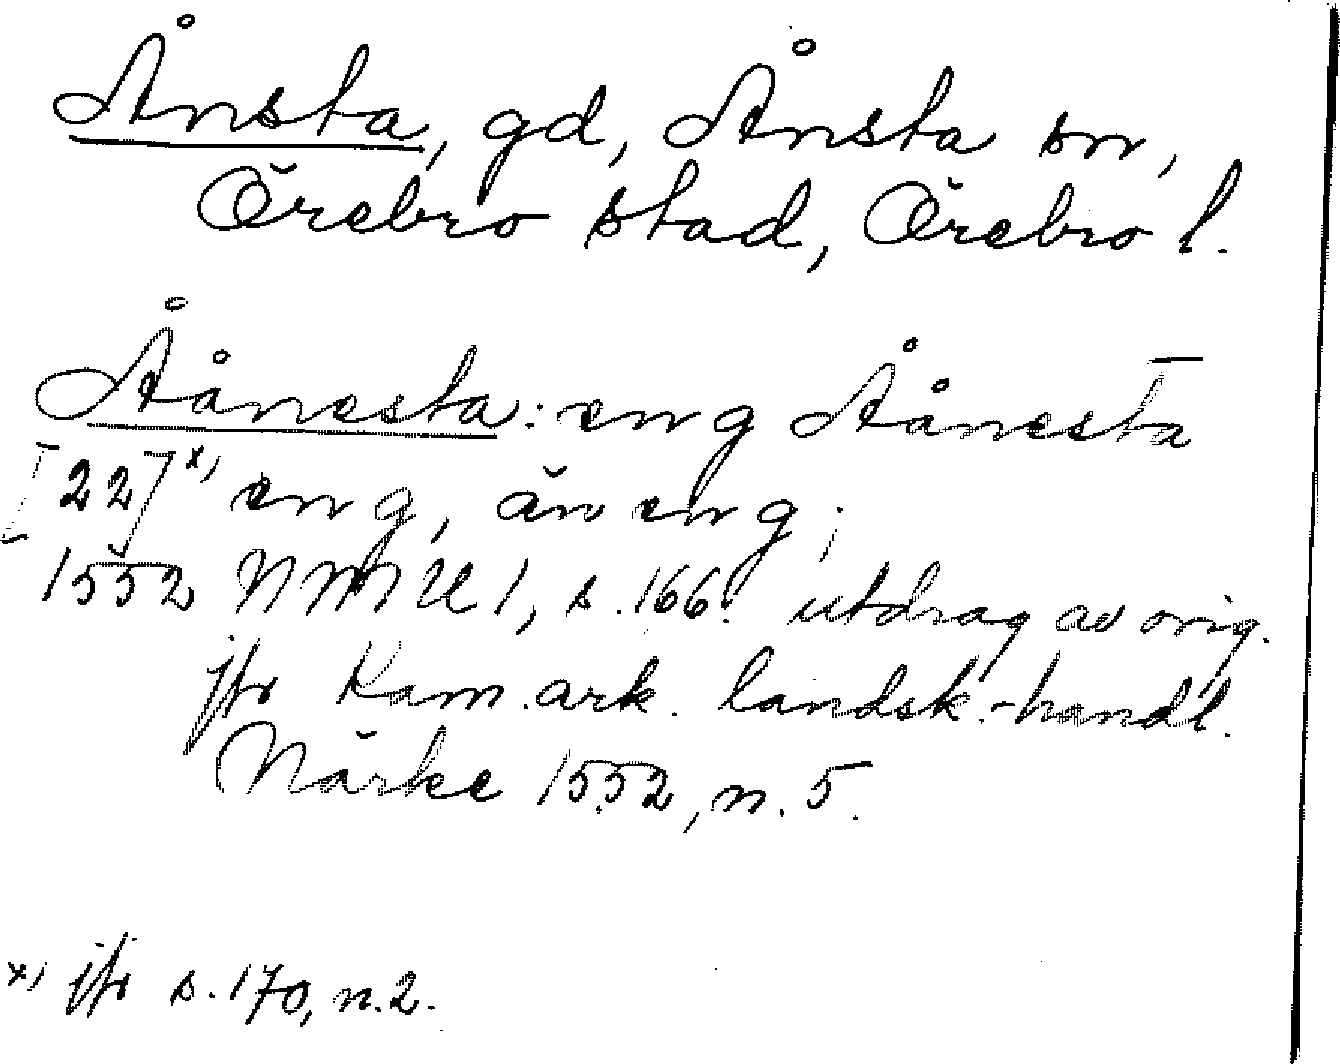 Ånsta, gd, Ånsta sn,
Örebro stad, Örebro l.
Åånesta: eng Åånesta
[22]x) eng, än eng;
1552 NMU 1, s. 166. utdrag av orig.
jfr Kam.ark. landsk.-handl.
Närke 1552, n. 5.
x) jfr s. 170, n. 2.